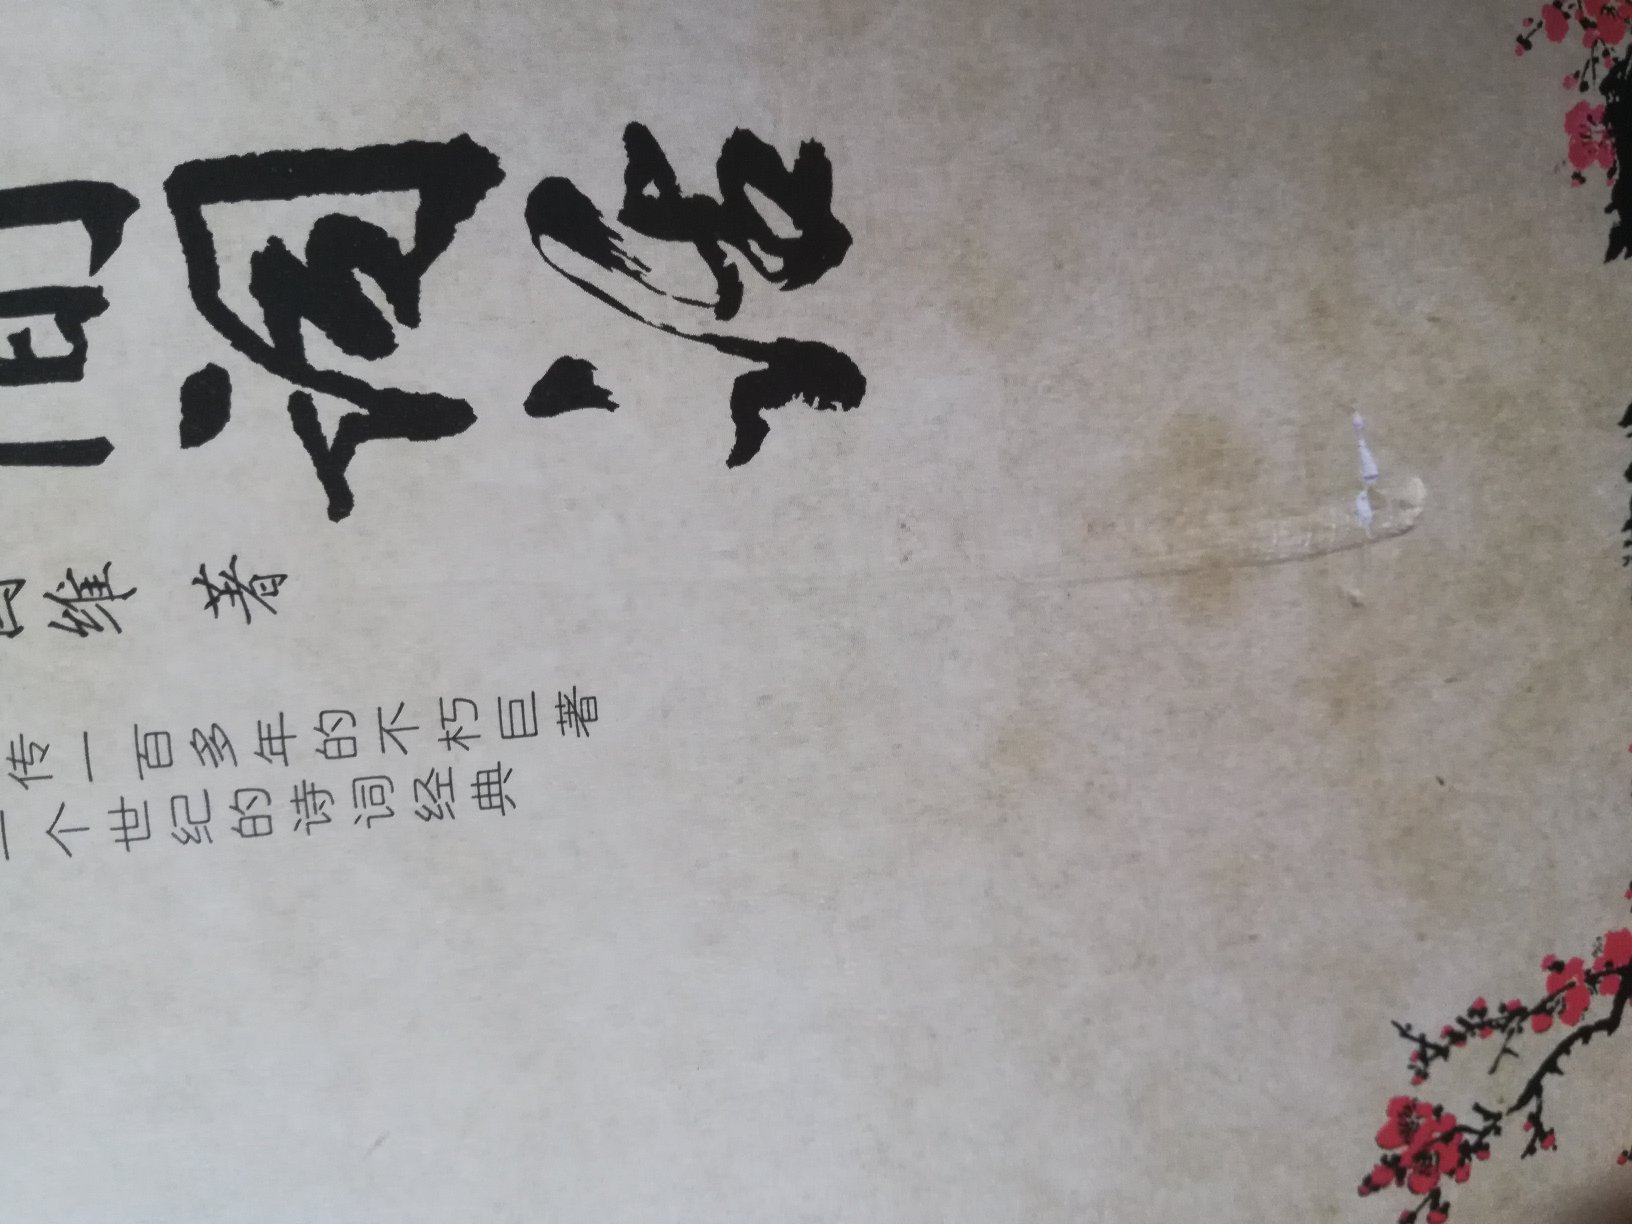 间词话
维 著
传一百多年的不朽巨著
一个世纪的诗词经典